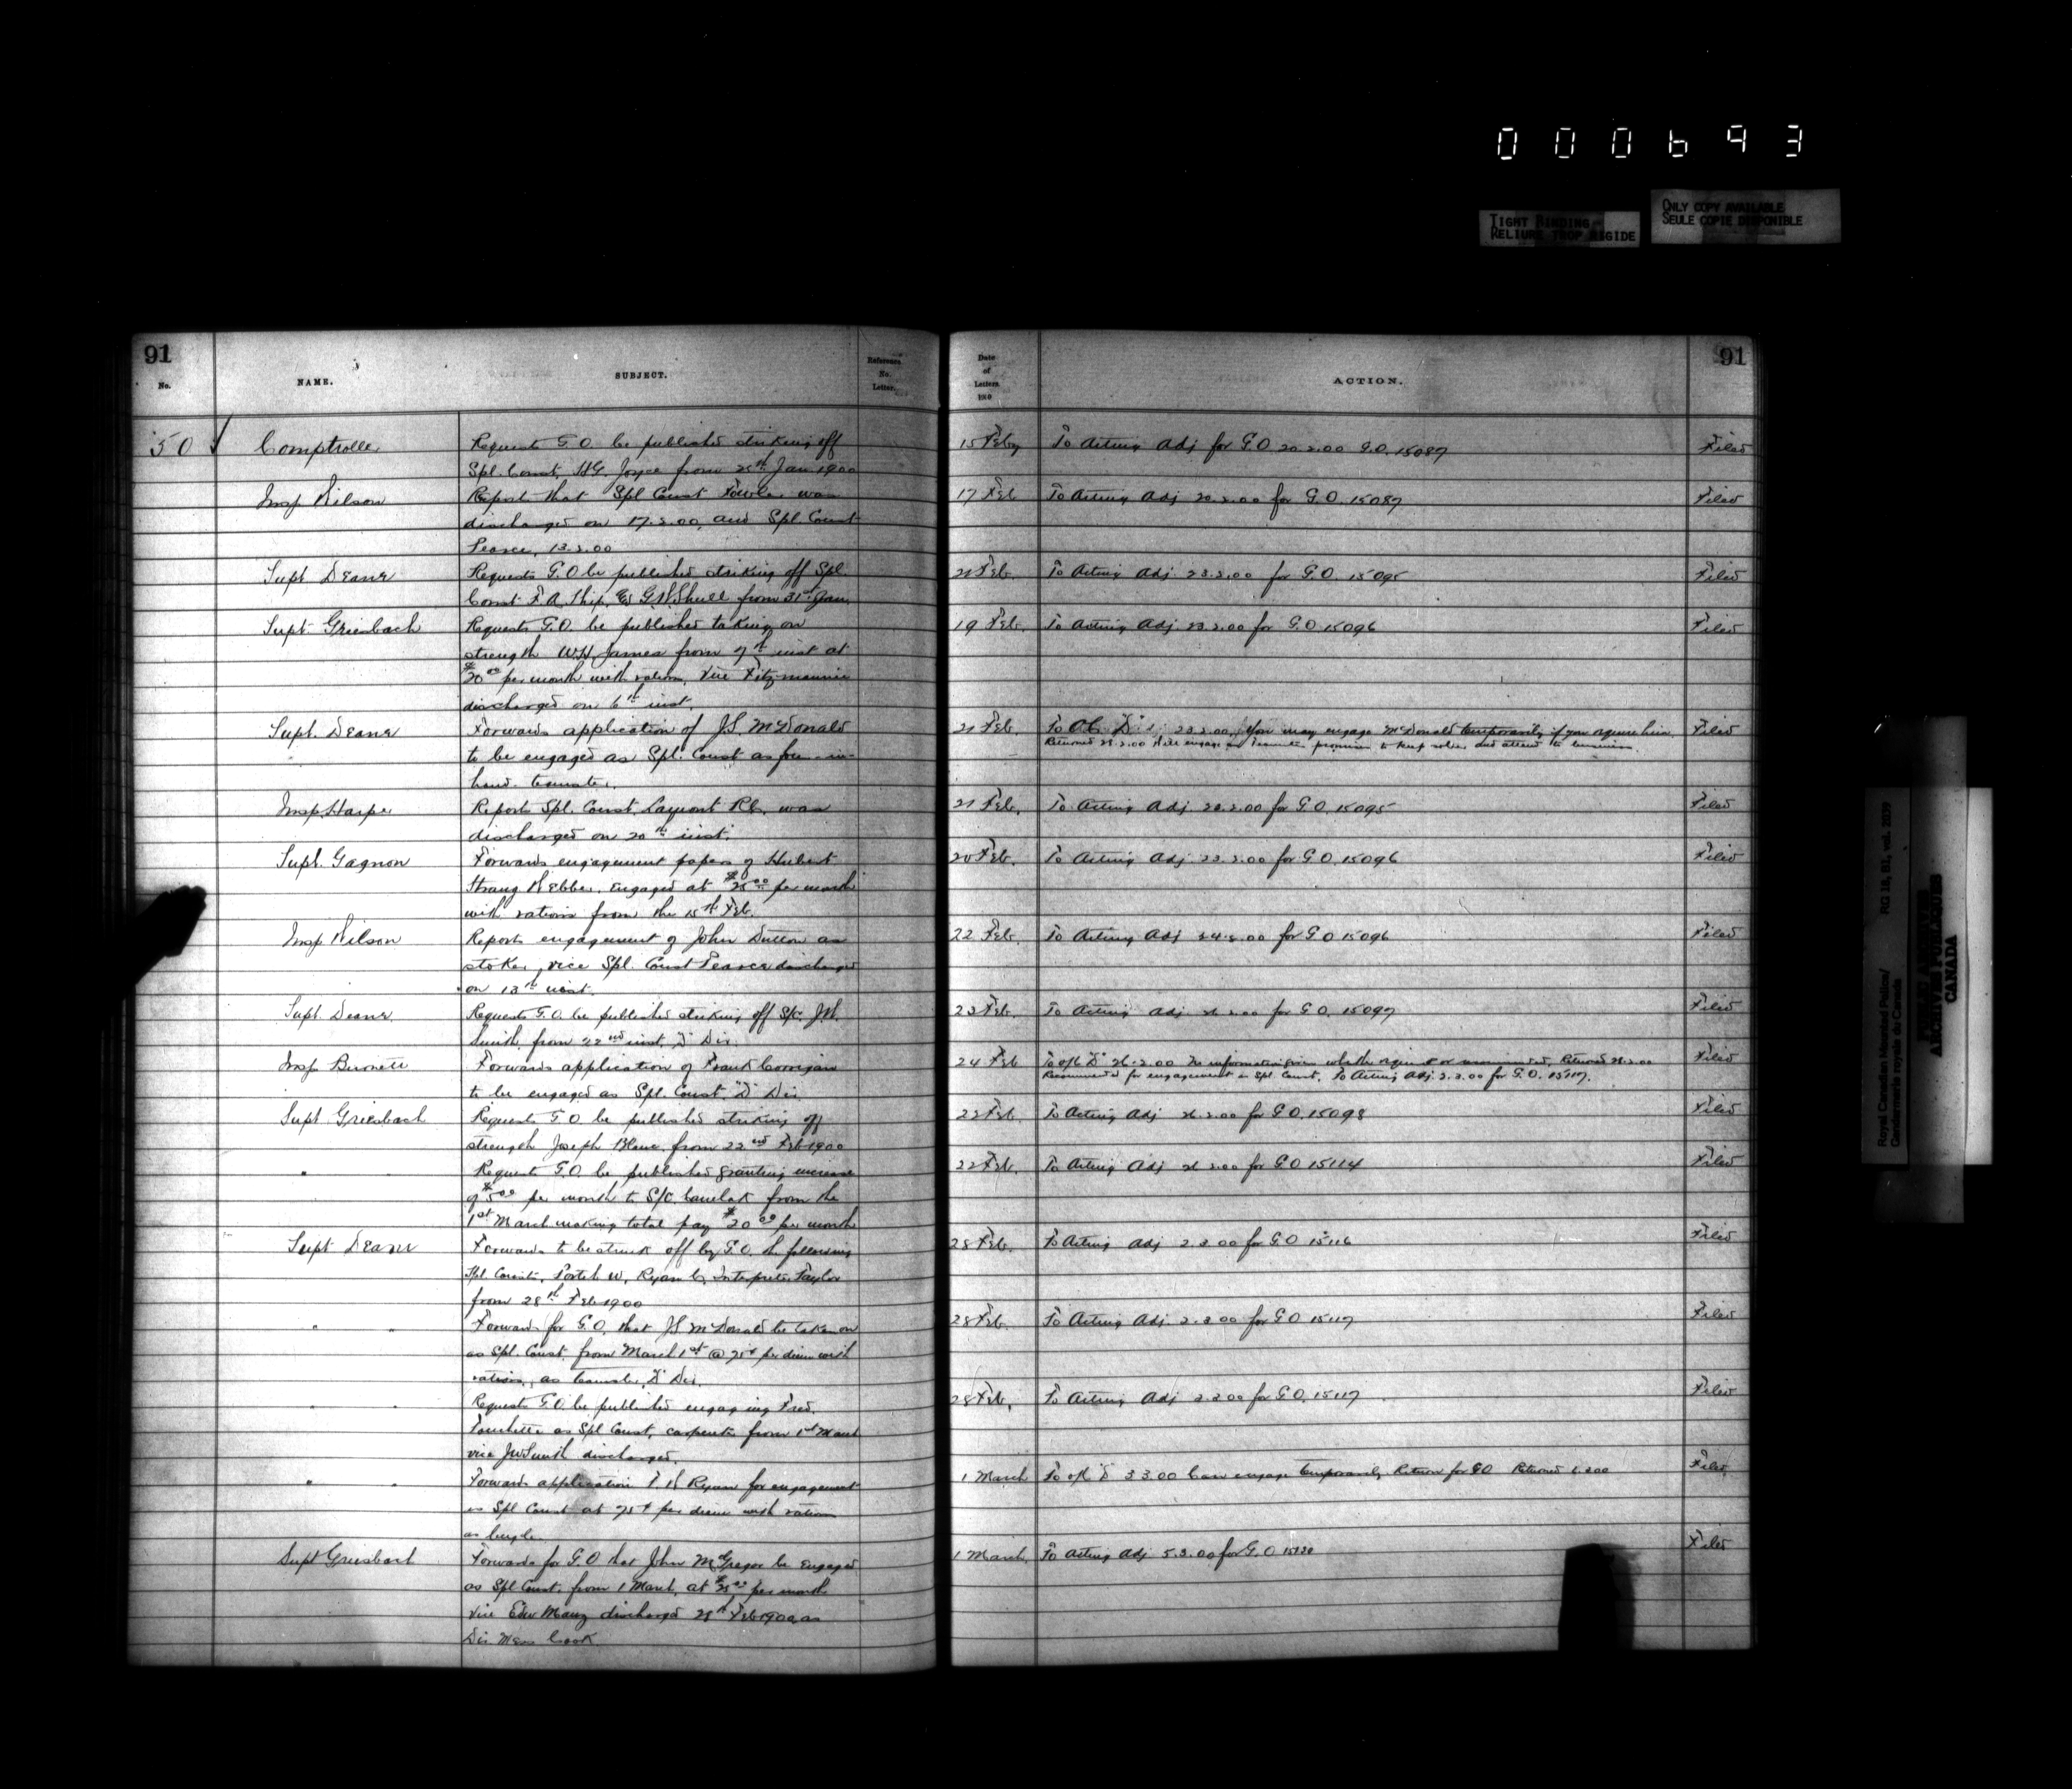 000693
TIGHT BINDING
RELIURE TROP RIGIDE
ONLY COPY AVAILABLE
SEULE COPIE DISPONIBLE
91
No.
NAME.
SUBJECT.
Reference.
No.
Letter.
Date
of
Letters
ACTION.
91
50 Comptroller Requests G.O. be published striking off 15 Feby To Acting Adj for G.O 20.2.00 G.O. 15087 Filed
Spl. Const. H.G. Joyce from 25th Jan 1900
Insp Wilson Reports that Spl Const Fowler was 17 Feb To Acting Adj 20.2.00 for G.O. 15087 Filed
discharged on 17.2.00, and Spl. Const
Pearce, 13.2.00
Supt Deane Requests G.O be published striking off Spl. 21 Feb. To Acting Adj 23.2.00 for G.O. 15095 Filed
Const F.A. Ship, & G.W. Shull from 31st Jan.
Supt Griesbach Requests G.O. be published taking on 19 Feb. To Acting Adj 23.2.00 for G.O 15096 Filed
strength W.H. James from 7th inst at
$20.00 per month with rations, vice Fitzmaurice
discharged on 6th inst.
Supt. Deane Forwards application of J.S. McDonald 21 Feb. 23.2.00. You may engage McDonald temporarily if you require him. Filed
to be engaged as Spl. Const as four-in-
hand teamster.
Returned 28.2.00 Will engage as Teamster promises to keep sober and attend to business
Insp. Harper Reports Spl. Const. R.C. was 21 Feb. To Acting Adj. 23.2.00 for G.O. 15095 Filed
discharged on 20th inst.
Supt. Gagnon Forwards engagement papers of Hubert 20 Feb. To Acting Adj. 23.2.00 for G.O. 15096 Filed
Strang Webber. Engaged at $25.00 per month
with rations from the 15th Feb.
Insp Wilson Reports engagement of John Dutton as 22 Feb. To Acting Adj 24.2.00 for G.O 15096 Filed
stoker, vice Spl. Const Pearce discharged
on 13th inst.
Supt. Deane. Requests G.O. be published striking off S/C. J.W. 23 Feb. To Acting Adj 26.2.00 for G.O. 15097 Filed
Smith, from 22nd inst. Div
Insp Burnett Forwards application of Frank Corrigan 24 Feb 26.2.00 No information given whether required or recommended. Returned 28.2.00 Filed
to be engaged as Spl. Const. "D" Div.
Recommended for engagement as Spl Const. To Acting Adj. 2.3.00 for G.O. 15117.
Supt Griesbach Requests G.O be published striking off 22 Feb To Acting Adj 26.2.00 for G.O. 15098 Filed
strength Joseph Blanc from 22nd Feb 1900
" " Requests G.O. be published granting increase 22 Feb. To Acting Adj 26.2.00 for G.O 15114 Filed
of $5.00 per month to S/C. from the
1st March making total pay $20.00 per month
Supt Deane Forwards to be struck off by G.O. the following 28 Feb. To Acting Adj 2.3.00 for G.O 15116 Filed
Spl. Consts, W, Ryan C, Interpreter Taylor
from 28th Feb 1900
" " Forwards for G.O. that J.S. McDonald be taken on 28 Feb. To Acting Adj. 2.3.00 for G.O 15117 Filed
as Spl. Const. from March 1st @ 75¢ per diem with
rations, as teamster, "D" Div.
" " Requests G.O. be published engaging Fred. 28 Feb. To Acting Adj 2.3.00 for G.O. 15117 Filed
as Spl Const, carpenter from 1st March
vice J.W. Smith discharged.
" " Forwards application Ryan for engagement 1 March 3.3.00 Can engage temporarily Return for GO Returned Filed
as Spl Const at 75¢ per diem with rations
as bugler
Supt Griesbach Forwards for G.O that John McGregor be engaged 1 March. To Acting Adj 5.3.00 for G.O Filed
as Spl Const. from 1 March, at $25.00 per month
vice Edw Manz discharged 28th Feb 1900, as
Div. Mess Cook
Royal Canadian Mounted Police/
Gendarmerie royale du Canada
RG 18, B1, vol. 2039
PUBLIC ARCHIVES
ARCHIVES PUBLIQUES
CANADA